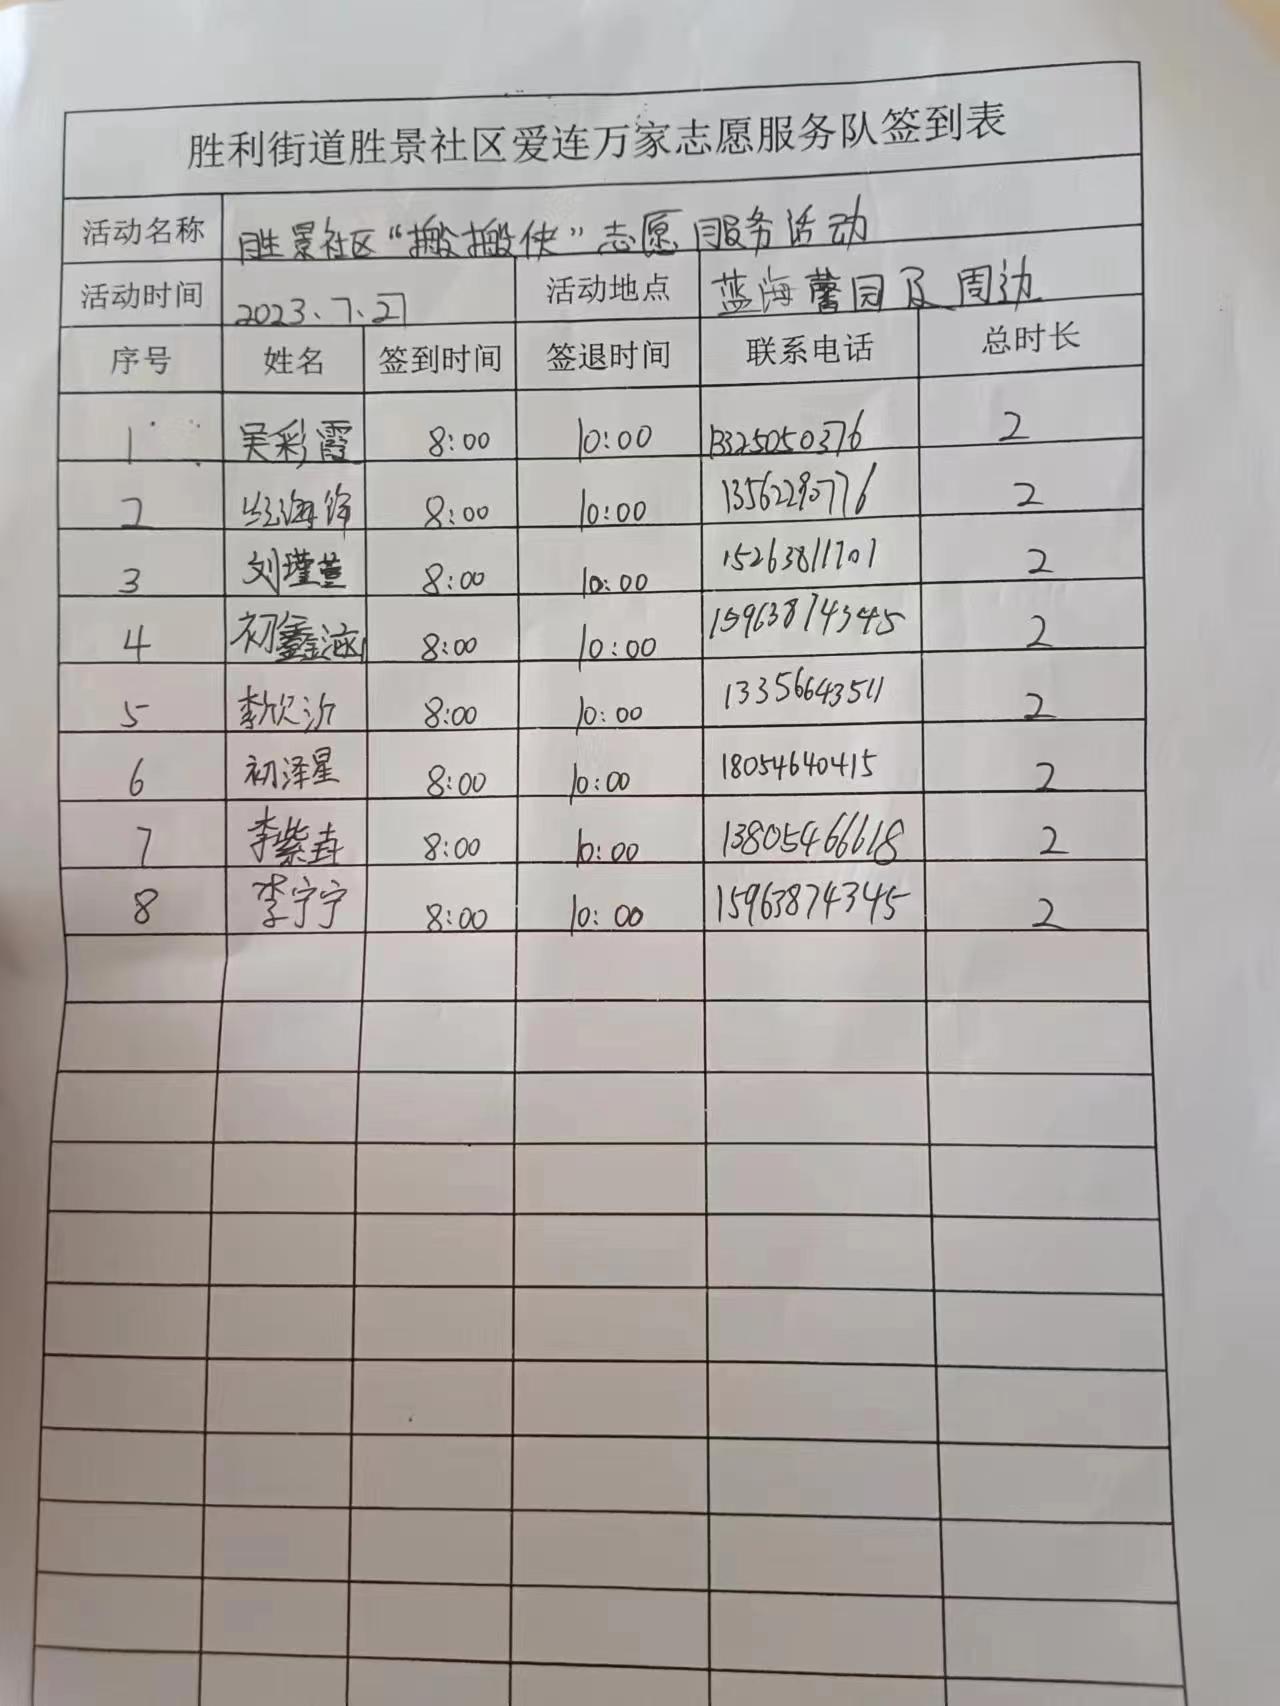 胜利街道胜景社区爱连万家志愿服务队签到表
活动名称 胜景社区“搬搬侠”志愿服务活动
活动时间 2023.7.27 活动地点 蓝海馨园及周边
序号 姓名 签到时间 签退时间 联系电话 总时长
1 吴彩霞 8:00 10:00 2
2 8:00 10:00 2
3 刘瑾萱 8:00 10:00 15263811701 2
4 初鑫涵 8:00 10:00 15963874345 2
5 李欣沂 8:00 10:00 13356643511 2
6 初泽星 8:00 10:00 18054640415 2
7 李紫垚 8:00 10:00 13805466618 2
8 李宁宁 8:00 10:00 15963874345 2